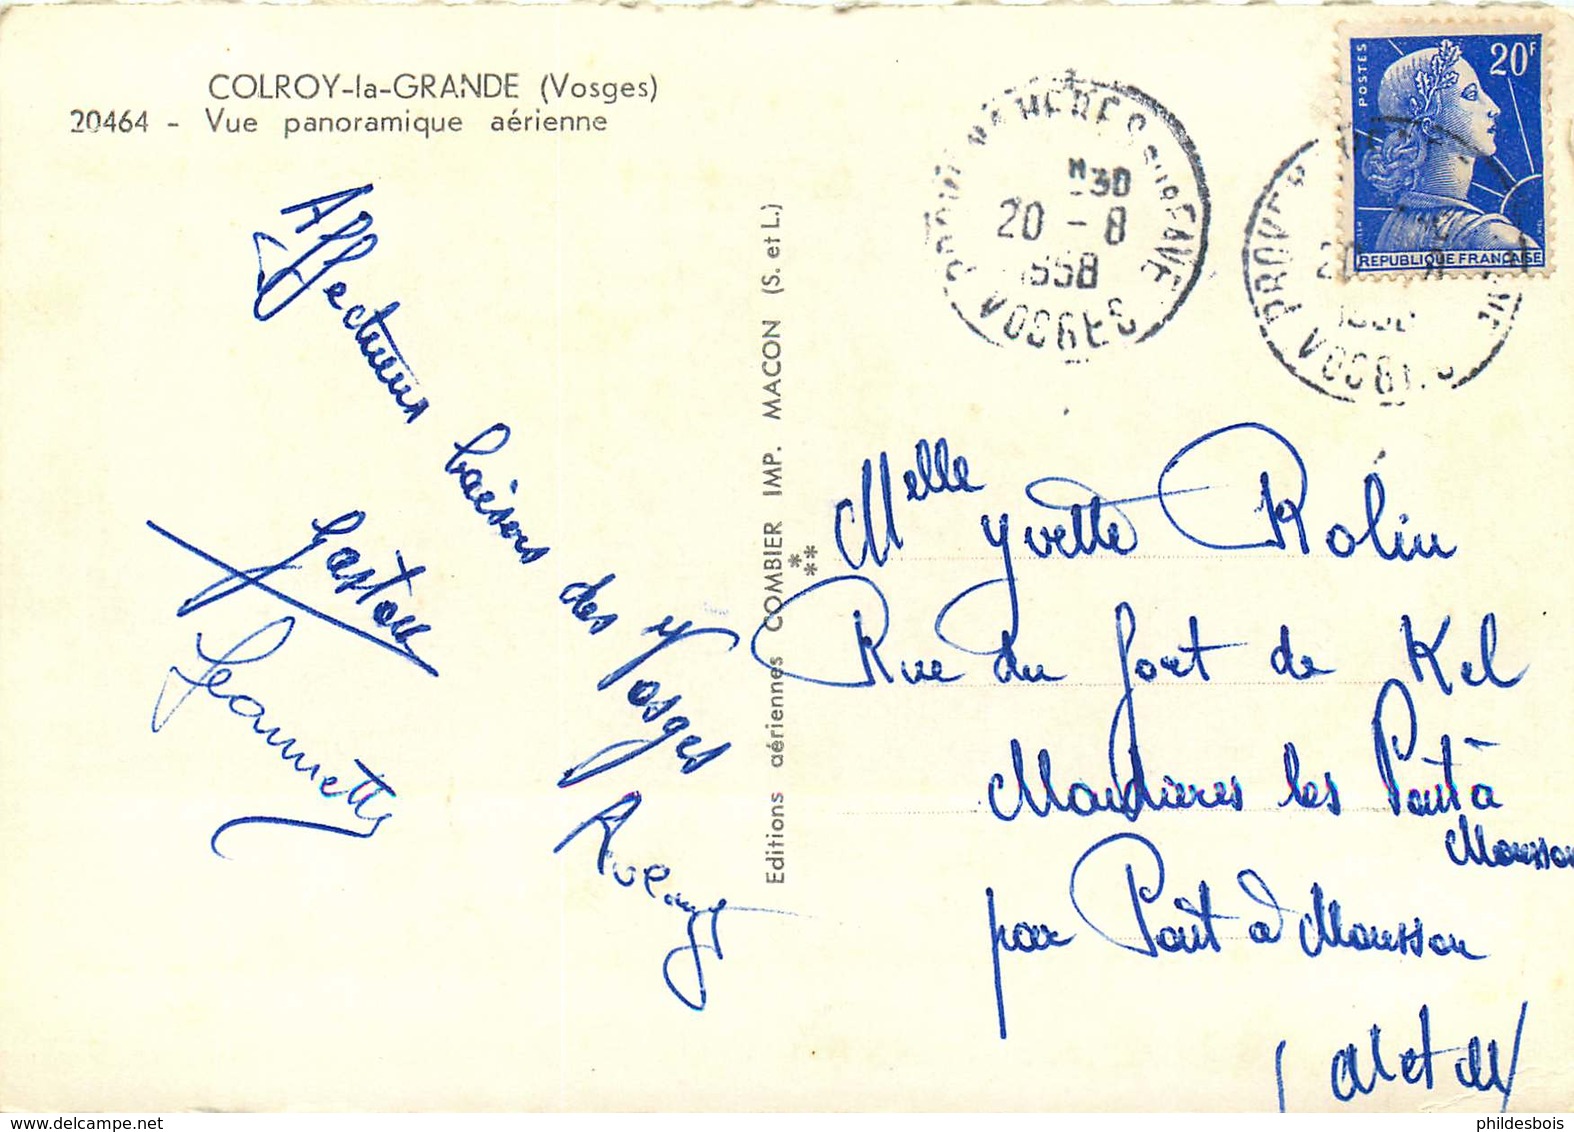 COLROY-la-GRANDE (Vosges)
20464 - Vue panoramique aérienne
Affectueux baisers des Vosges
Gaston
Jeannette
Editions aériennes COMBIER IMP. MACON (S. et L.)
20 - 8
1958
VOSGES
20F
POSTES
REPUBLIQUE FRANÇAISE
Melle Yvette Robin
Rue du fort de Kel
Maidières les Pont à
Mousson
par Pont à Mousson
(M et M)
phildesbois